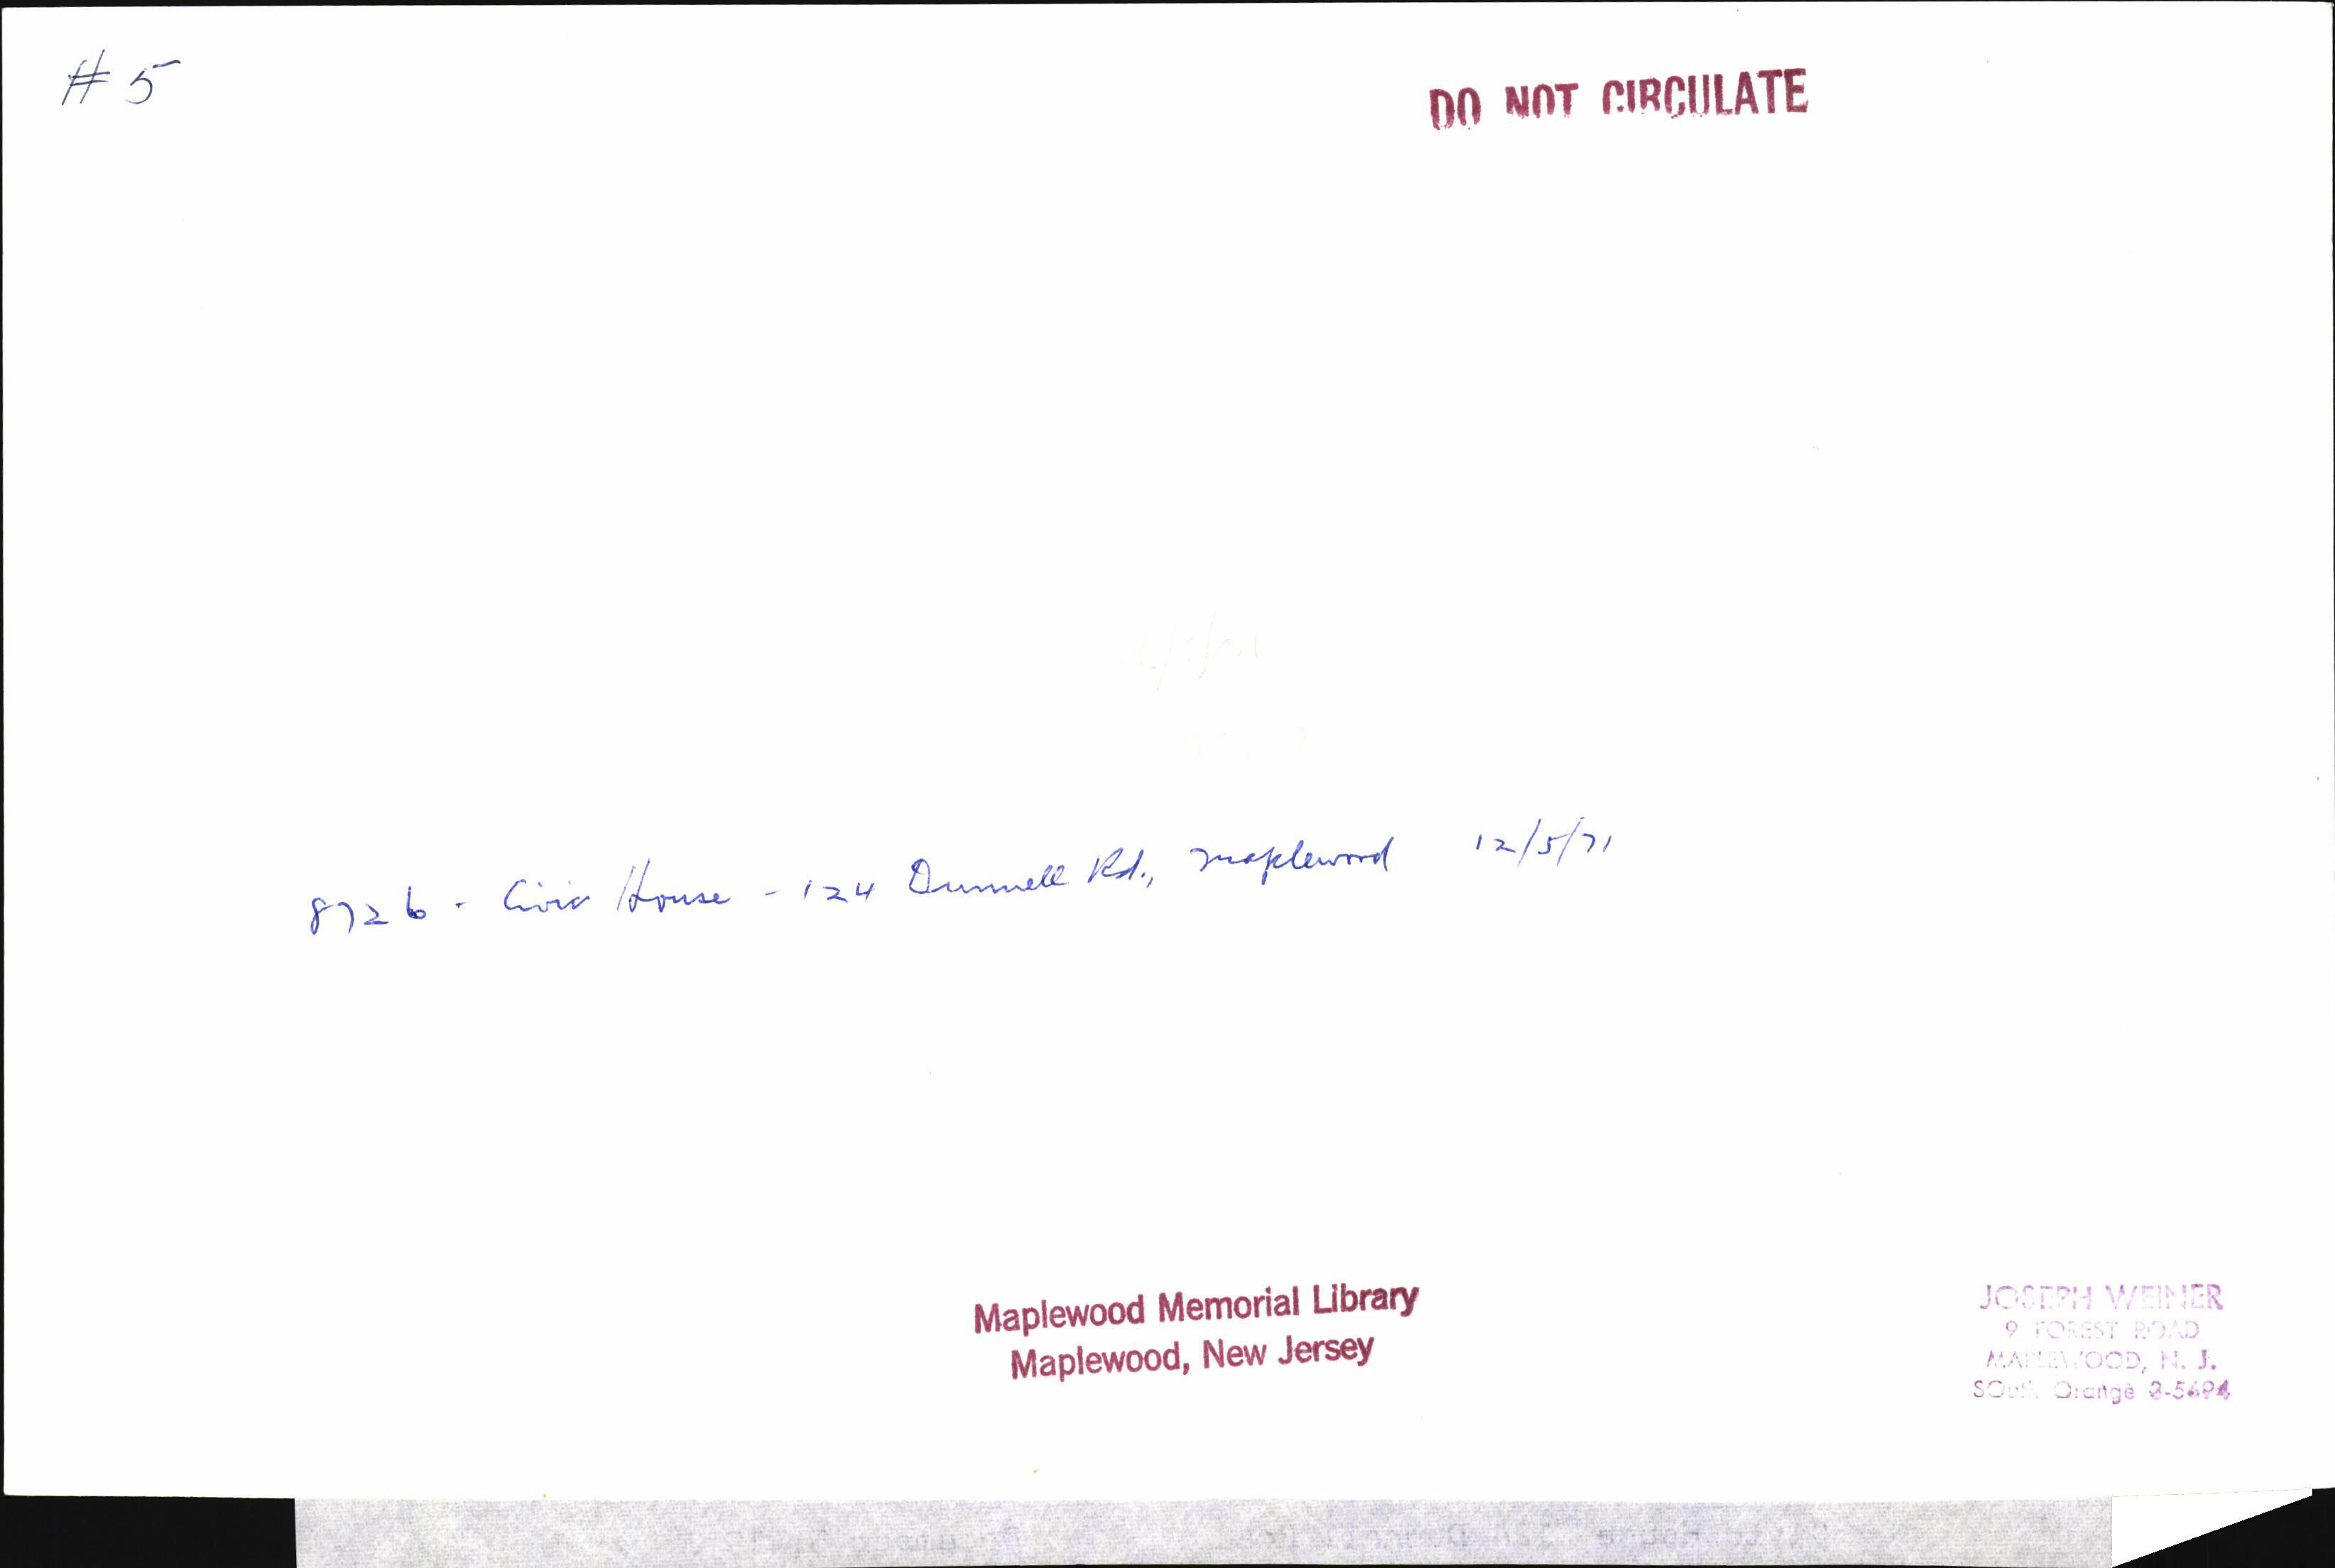 # 5
DO NOT CIRCULATE
8726 - Civic House - 124 Dunnell Rd., Maplewood 12/5/71
Maplewood Memorial Library
Maplewood, New Jersey
JOSEPH WEINER
9 FOREST ROAD
MAPLEWOOD, N. J.
SOuth Orange 3-5694